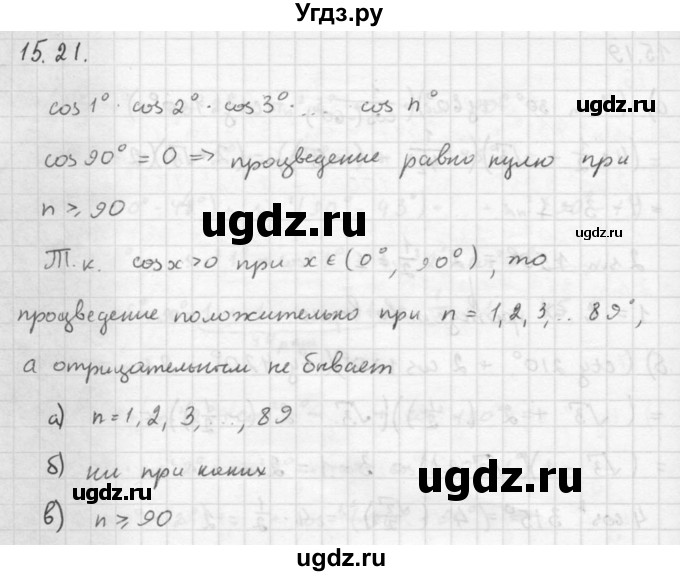 Угдз.ру
15.21.
cos1°·cos2°·cos3°·... cos n°
ugdz.ru
cos90° = 0 => произведение равно нулю при
n ⩾ 90
ugdz.ru
ugdz.ru
Т.к. cosx>0 при x∈(0°, 90°), то
произведение положительно при n = 1,2,3,..89°,
а отрицательным не бывает
а) n=1, 2, 3, ..., 89
б) ни при каких
ugdz.ru
ugdz.ru
в) n ⩾ 90
ugdz.ru